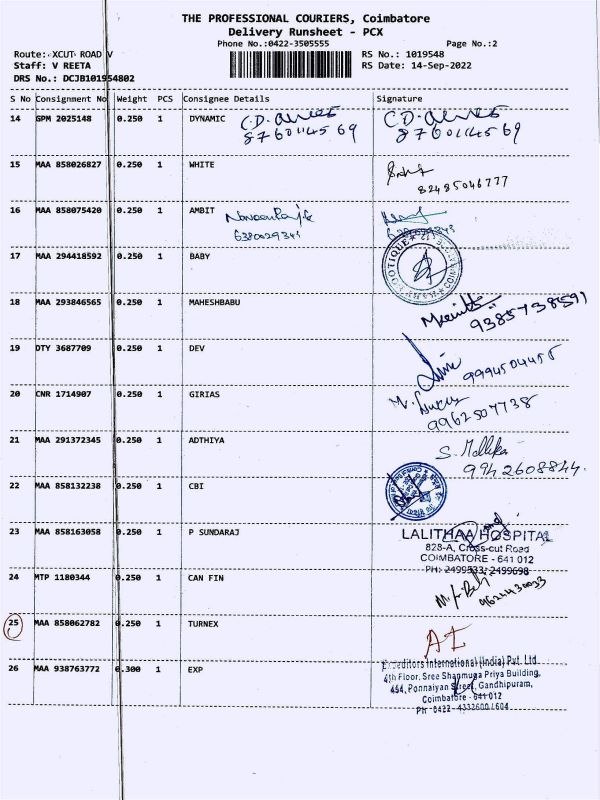 THE PROFESSIONAL COURIERS, Coimbatore
Delivery Runsheet - PCX
Phone No.:0422-3505555 Page No.:2
Route: XCUT ROAD V RS No.: 1019548
Staff: V REETA RS Date: 14-Sep-2022
DRS No.: DCJB101954802
S No Consignment No Weight PCS Consignee Details Signature
14 GPM 2025148 0.250 1 DYNAMIC
8760114569 8760114569
15 MAA 858026827 0.250 1 WHITE
82485046777
16 MAA 858075420 0.250 1 AMBIT
17 MAA 294418592 0.250 1 BABY
18 MAA 293846565 0.250 1 MAHESHBABU
9385738591
19 DTY 3687709 0.250 1 DEV
9994504455
20 CNR 1714907 0.250 1 GIRIAS
9962507738
21 MAA 291372345 0.250 1 ADTHIYA S. Mallika
9942608844.
22 MAA 858132238 0.250 1 CBI
23 MAA 858163058 0.250 1 P SUNDARAJ LALITHAA HOSPITAL
828-A, Cross-cut Road
COIMBATORE - 641 012
PH: 2499533; 2499698
24 MTP 1180344 0.250 1 CAN FIN
25 MAA 858062782 0.250 1 TURNEX
26 MAA 938763772 0.300 1 EXP
Expeditors International (India) Pvt. Ltd
4th Floor, Sree Shanmuga Priya Building,
454, Ponnaiyan Street, Gandhipuram,
Coimbatore - 641 012
Ph - 0422 - 4332600 / 604